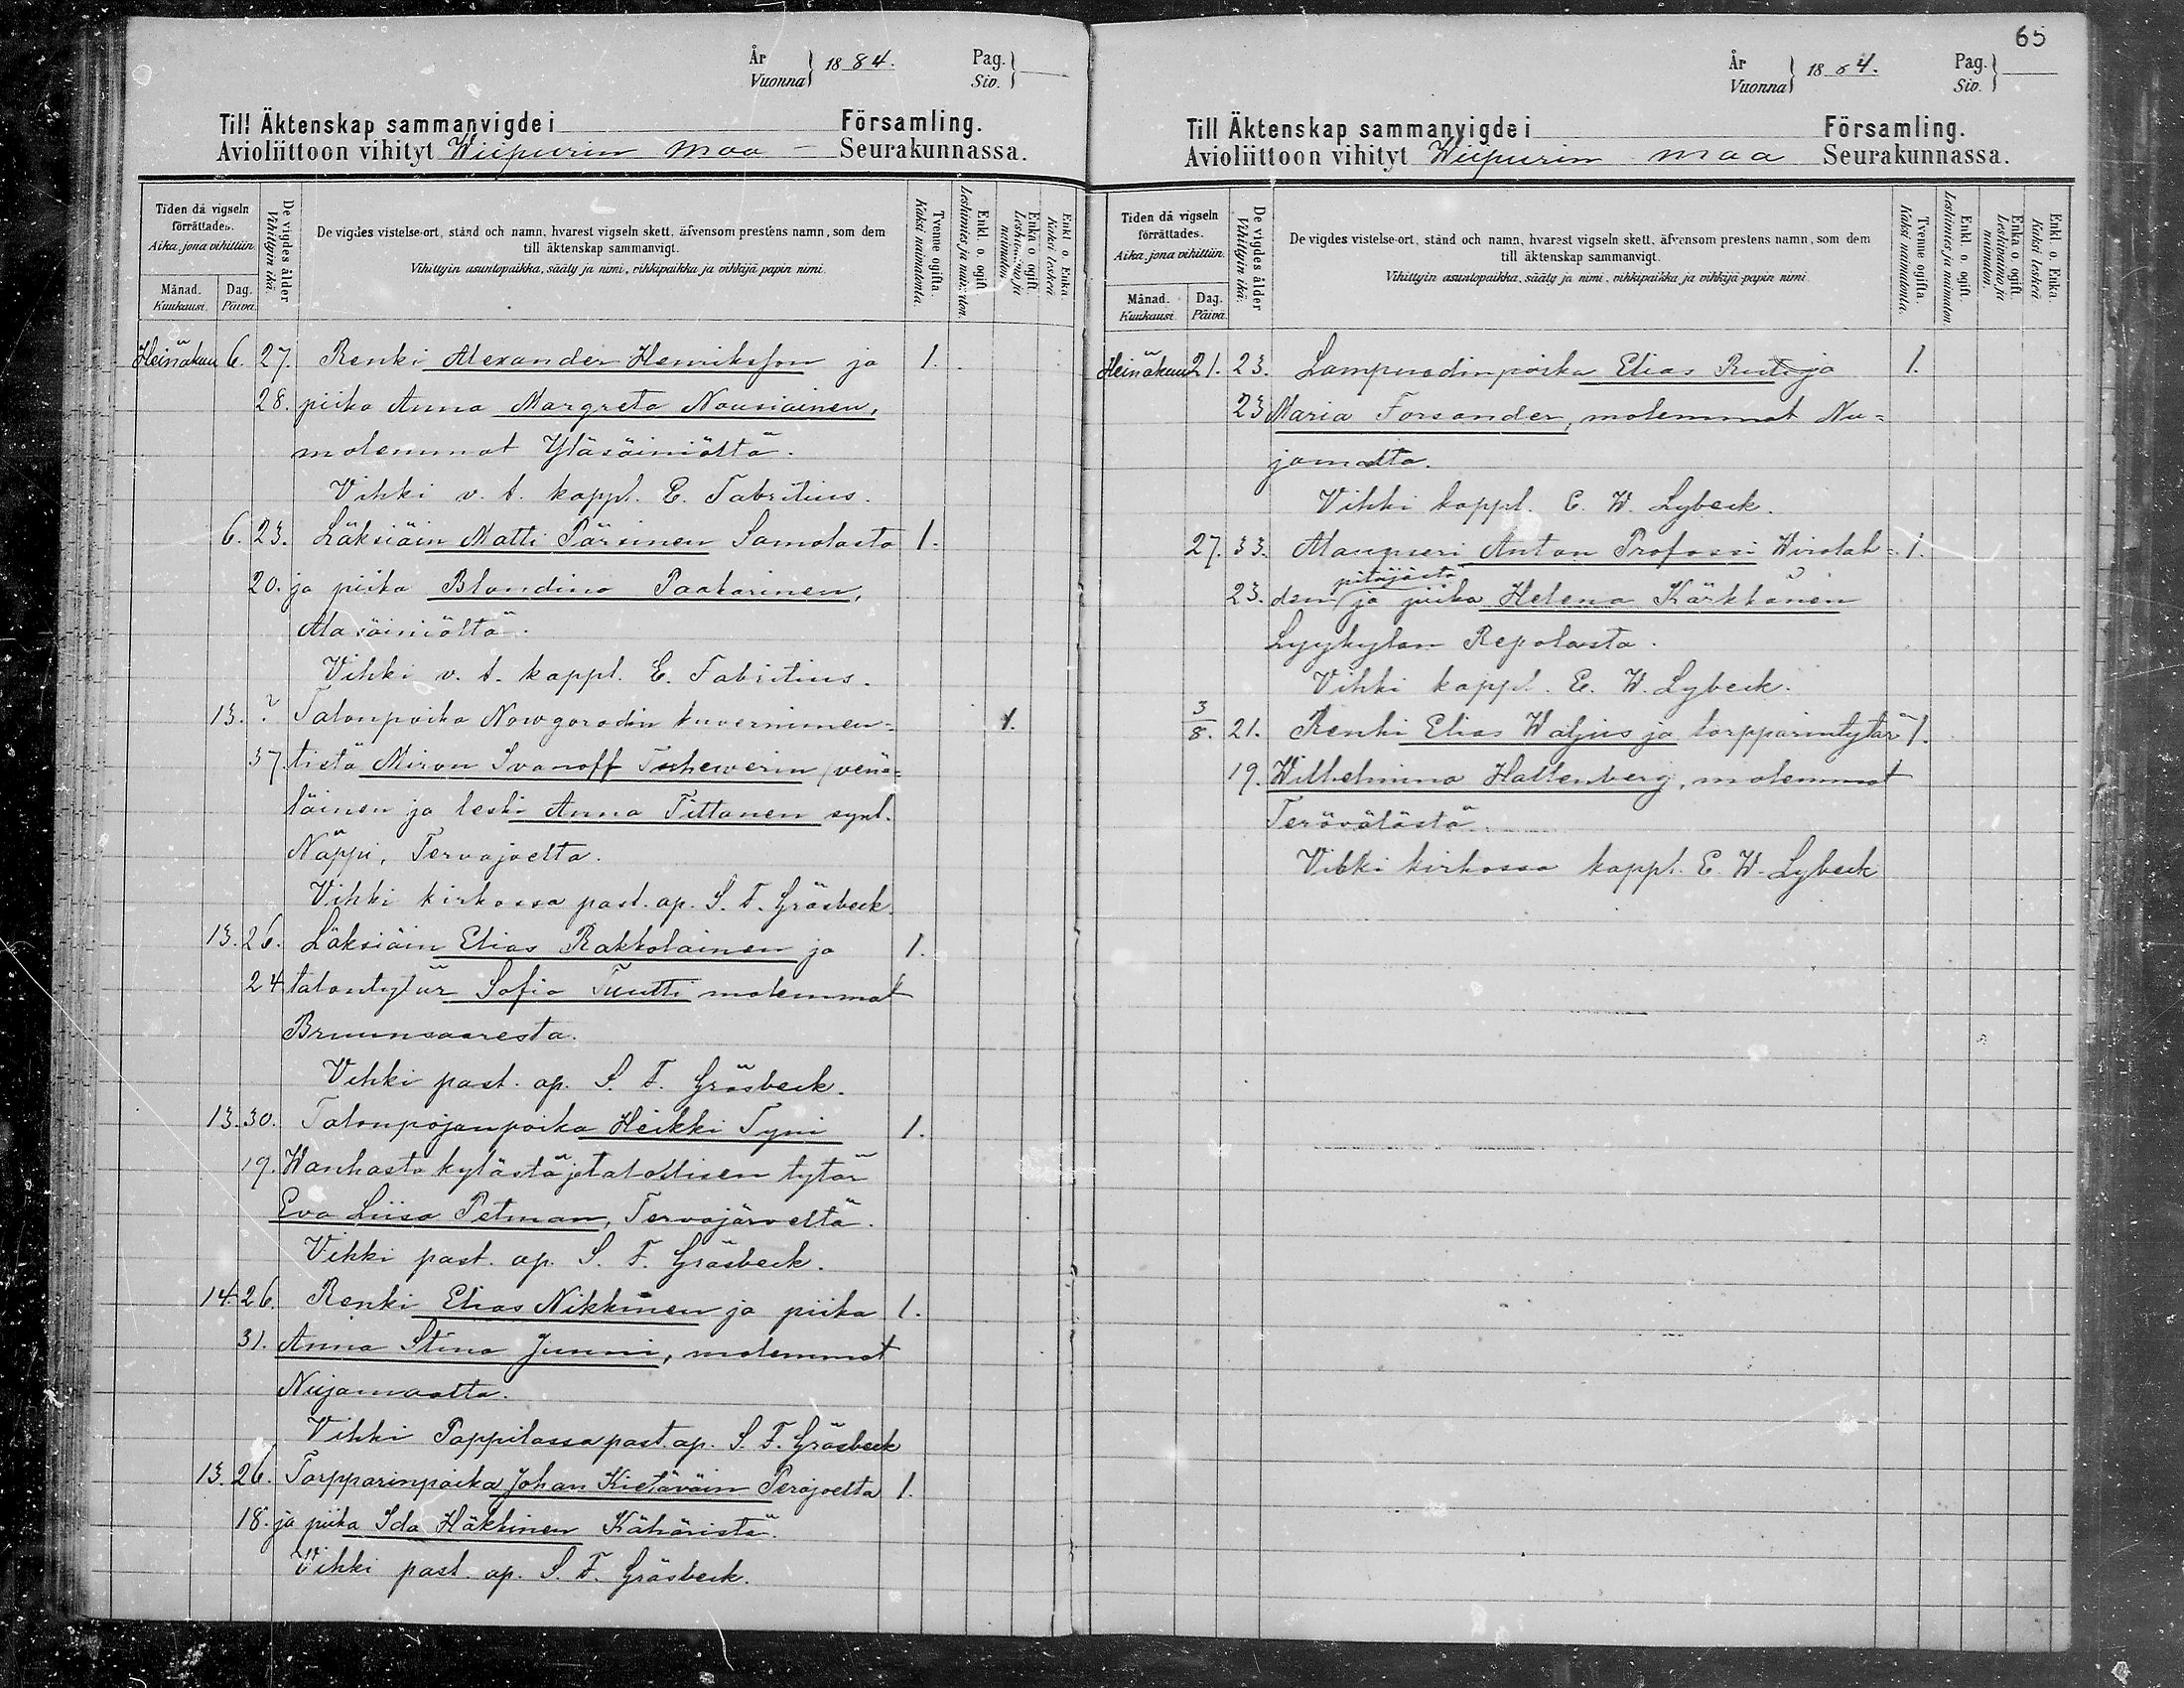 År
Vuonna } 1884.
Pag.
Siv. }
Till Äktenskap sammanvigde i Församling.
Avioliittoon vihityt Wiipurin maa - Seurakunnassa.
Tiden då vigseln förrättades.
Aika, jona vihittiin.
Månad.
Kuukausi.
Dag.
Päivä.
De vigdes ålder
Vihittyin ikä.
De vigdes vistelse-ort, stånd och namn, hvarest vigseln skett, äfvensom prestens namn, som dem
till äktenskap sammanvigt.
Vihittyin asuntopaikka, sääty ja nimi, vihkipaikka ja vihkijä papin nimi.
Tvenne ogifta.
Kaksi naimatonta.
Enkl. o. ogift.
Leskimies ja naimaton.
Enka o. ogift.
Leskivaimo ja naimaton.
Enkl. o. Enka.
Kaksi leskeä
Heinäkuu 6. 27. Renki Alexander Henriksson ja 1.
28. piika Anna Margreta Nousiainen,
molemmat Yläsäiniöltä.
Vihki v. t. kappl. E. Fabritius.
6. 23. Läksiäin Matti Pärsinen Samolasta 1.
20. ja piika Blandina Paakarinen,
Alasäiniöltä.
Vihki v. t. kappl. E. Fabritius.
13. ? Talonpoika Nowgorodin kuvernimen= 1.
37. tistä Miron Ivanoff Tschewerin (venä=
läinen ja leski Anna Tittanen synt.
Näppi, Tervajoelta.
Vihki kirkossa past. ap. S. F. Gräsbeck.
13. 26. Läksiäin Elias Rakkolainen ja 1.
24. talontytär Sofia Tuutti molemmat
Bruunsaaresta.
Vihki past. ap. S. F. Gräsbeck.
13. 30. Talonpojanpoika Heikki Tyni 1.
19. Wanhasta kylästä ja talollisen tytär
Eva Liisa Petman, Tervajärveltä.
Vihki past. ap. S. F. Gräsbeck.
14. 26. Renki Elias Nikkinen ja piika 1.
31. Anna Stina Junni, molemmat
Nuijamaalta.
Vihki Pappilassa past. ap. S. F. Gräsbeck
13. 26. Torpparinpoika Johan Kietäväin Perojoelta 1.
18. ja piika Ida Häkkinen Kähäristä.
Vihki past. ap. S. F. Gräsbeck.
65
År
Vuonna } 1884.
Pag.
Siv. }
Till Äktenskap sammanvigde i Församling.
Avioliittoon vihityt Wiipurin maa Seurakunnassa.
Tiden då vigseln förrättades.
Aika, jona vihittiin.
Månad.
Kuukausi.
Dag.
Päivä.
De vigdes ålder
Vihittyin ikä.
De vigdes vistelse-ort, stånd och namn, hvarest vigseln skett, äfvensom prestens namn, som dem
till äktenskap sammanvigt.
Vihittyin asuntopaikka, sääty ja nimi, vihkipaikka ja vihkijä-papin nimi.
Tvenne ogifta.
Kaksi naimatonta.
Enkl. o. ogift.
Leskimies ja naimaton.
Enka o. ogift.
Leskivaimo ja naimaton.
Enkl. o. Enka.
Kaksi leskeä
Heinäkuu 21. 23. Lampuodinpoika Elias Rut ja 1.
23 Maria Forsander, molemmat Nu=
jamalta.
Vihki kappl. E. W. Lybeck.
27. 33. Alaupseri Anton Profossi Wirolah= 1.
pitäjästä
23. den ja piika Helena Kärkkänen
Lyykylän Repolasta.
Vihki kappl. E. W. Lybeck.
3/8. 21. Renki Elias Waljus ja torpparintytär 1.
19. Wilhelmina Hallenberg, molemmat
Terävälästä.
Vihki kirkossa kappl. E. W. Lybeck